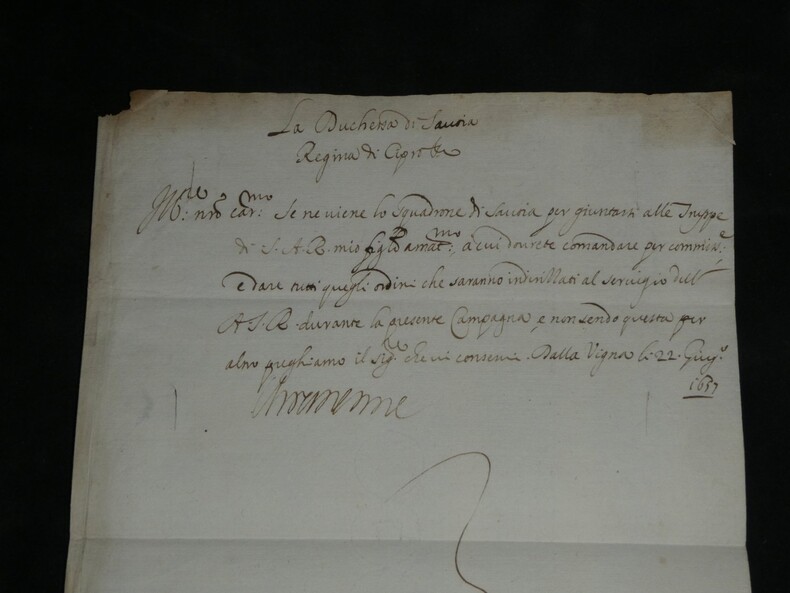 La Duchessa di Savoia
Regina di Cipro &c
M.to nro car.mo Se ne viene lo Squadrone di Savoia per giuntarsi alle Truppe
di S. A. R. mio figlio amat.mo, a cui dovrete comandare per commiss.e
e dare tutti quegli ordini che saranno indirizzati al servigio dell'
A. S. R. durante la presente Campagna, e non sendo questa per
altro preghiamo il Sig.re che vi conservi. Dalla Vigna li 22. Giug.o
1657
Chrestienne